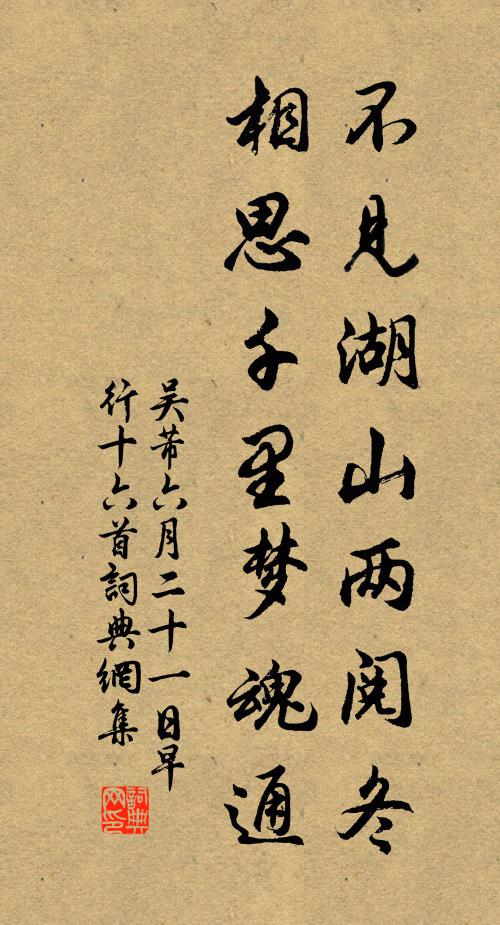 不见湖山两阅冬
相思千里梦魂通
吴芾六月二十一日早
行十六首詞典網集
詞典網印